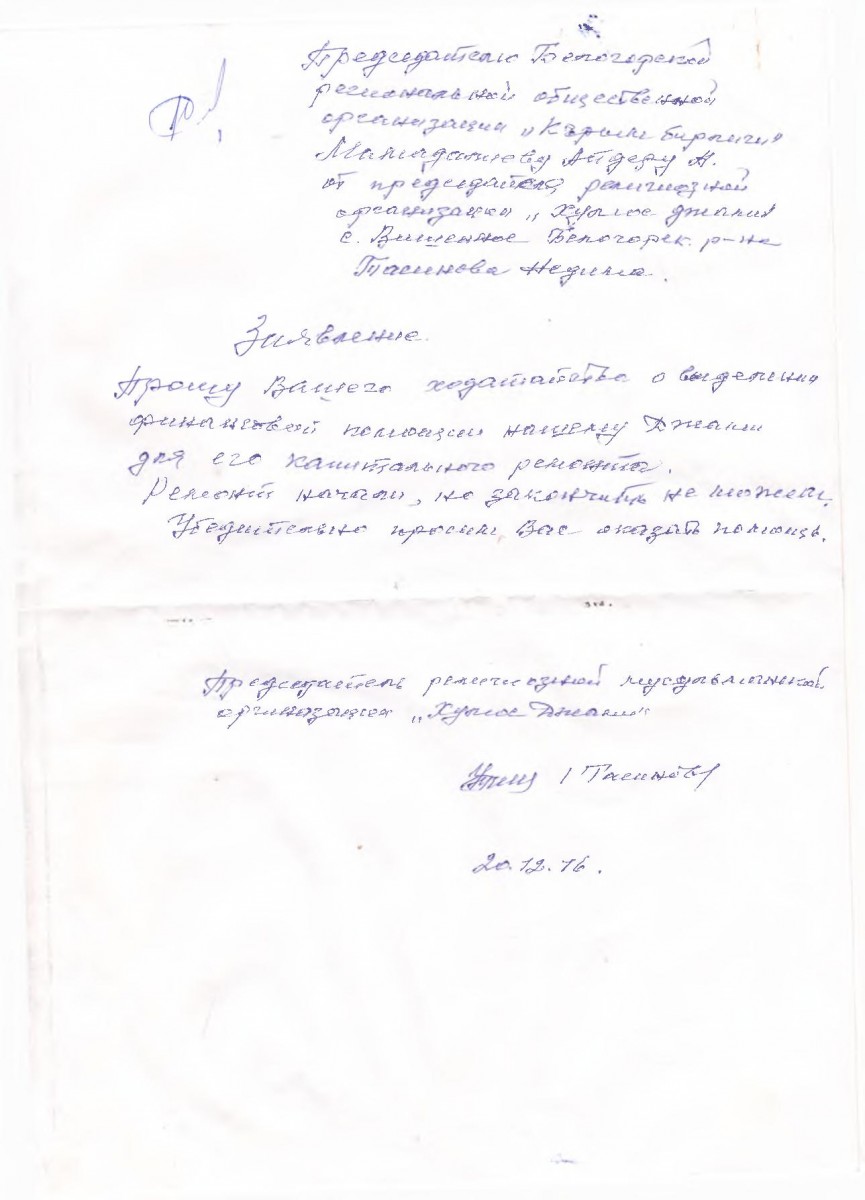 Председателю Белогорской
региональной общественной
организации „Къырым бирлиги"
Айдеру А.
от председателя религиозной
организации „Хулюс джами"
с. Вишенное Белогорск. р-на
Тасинова Недима.
Заявление.
Прошу Вашего ходатайства о выделении
финансовой помощи нашему Джами
для его капитального ремонта.
Ремонт начали, но закончить не можем.
Убедительно просим Вас оказать помощь.
Председатель религиозной мусульманской
организации „Хулюс Джами"
/ Тасинов/
20.12.16.